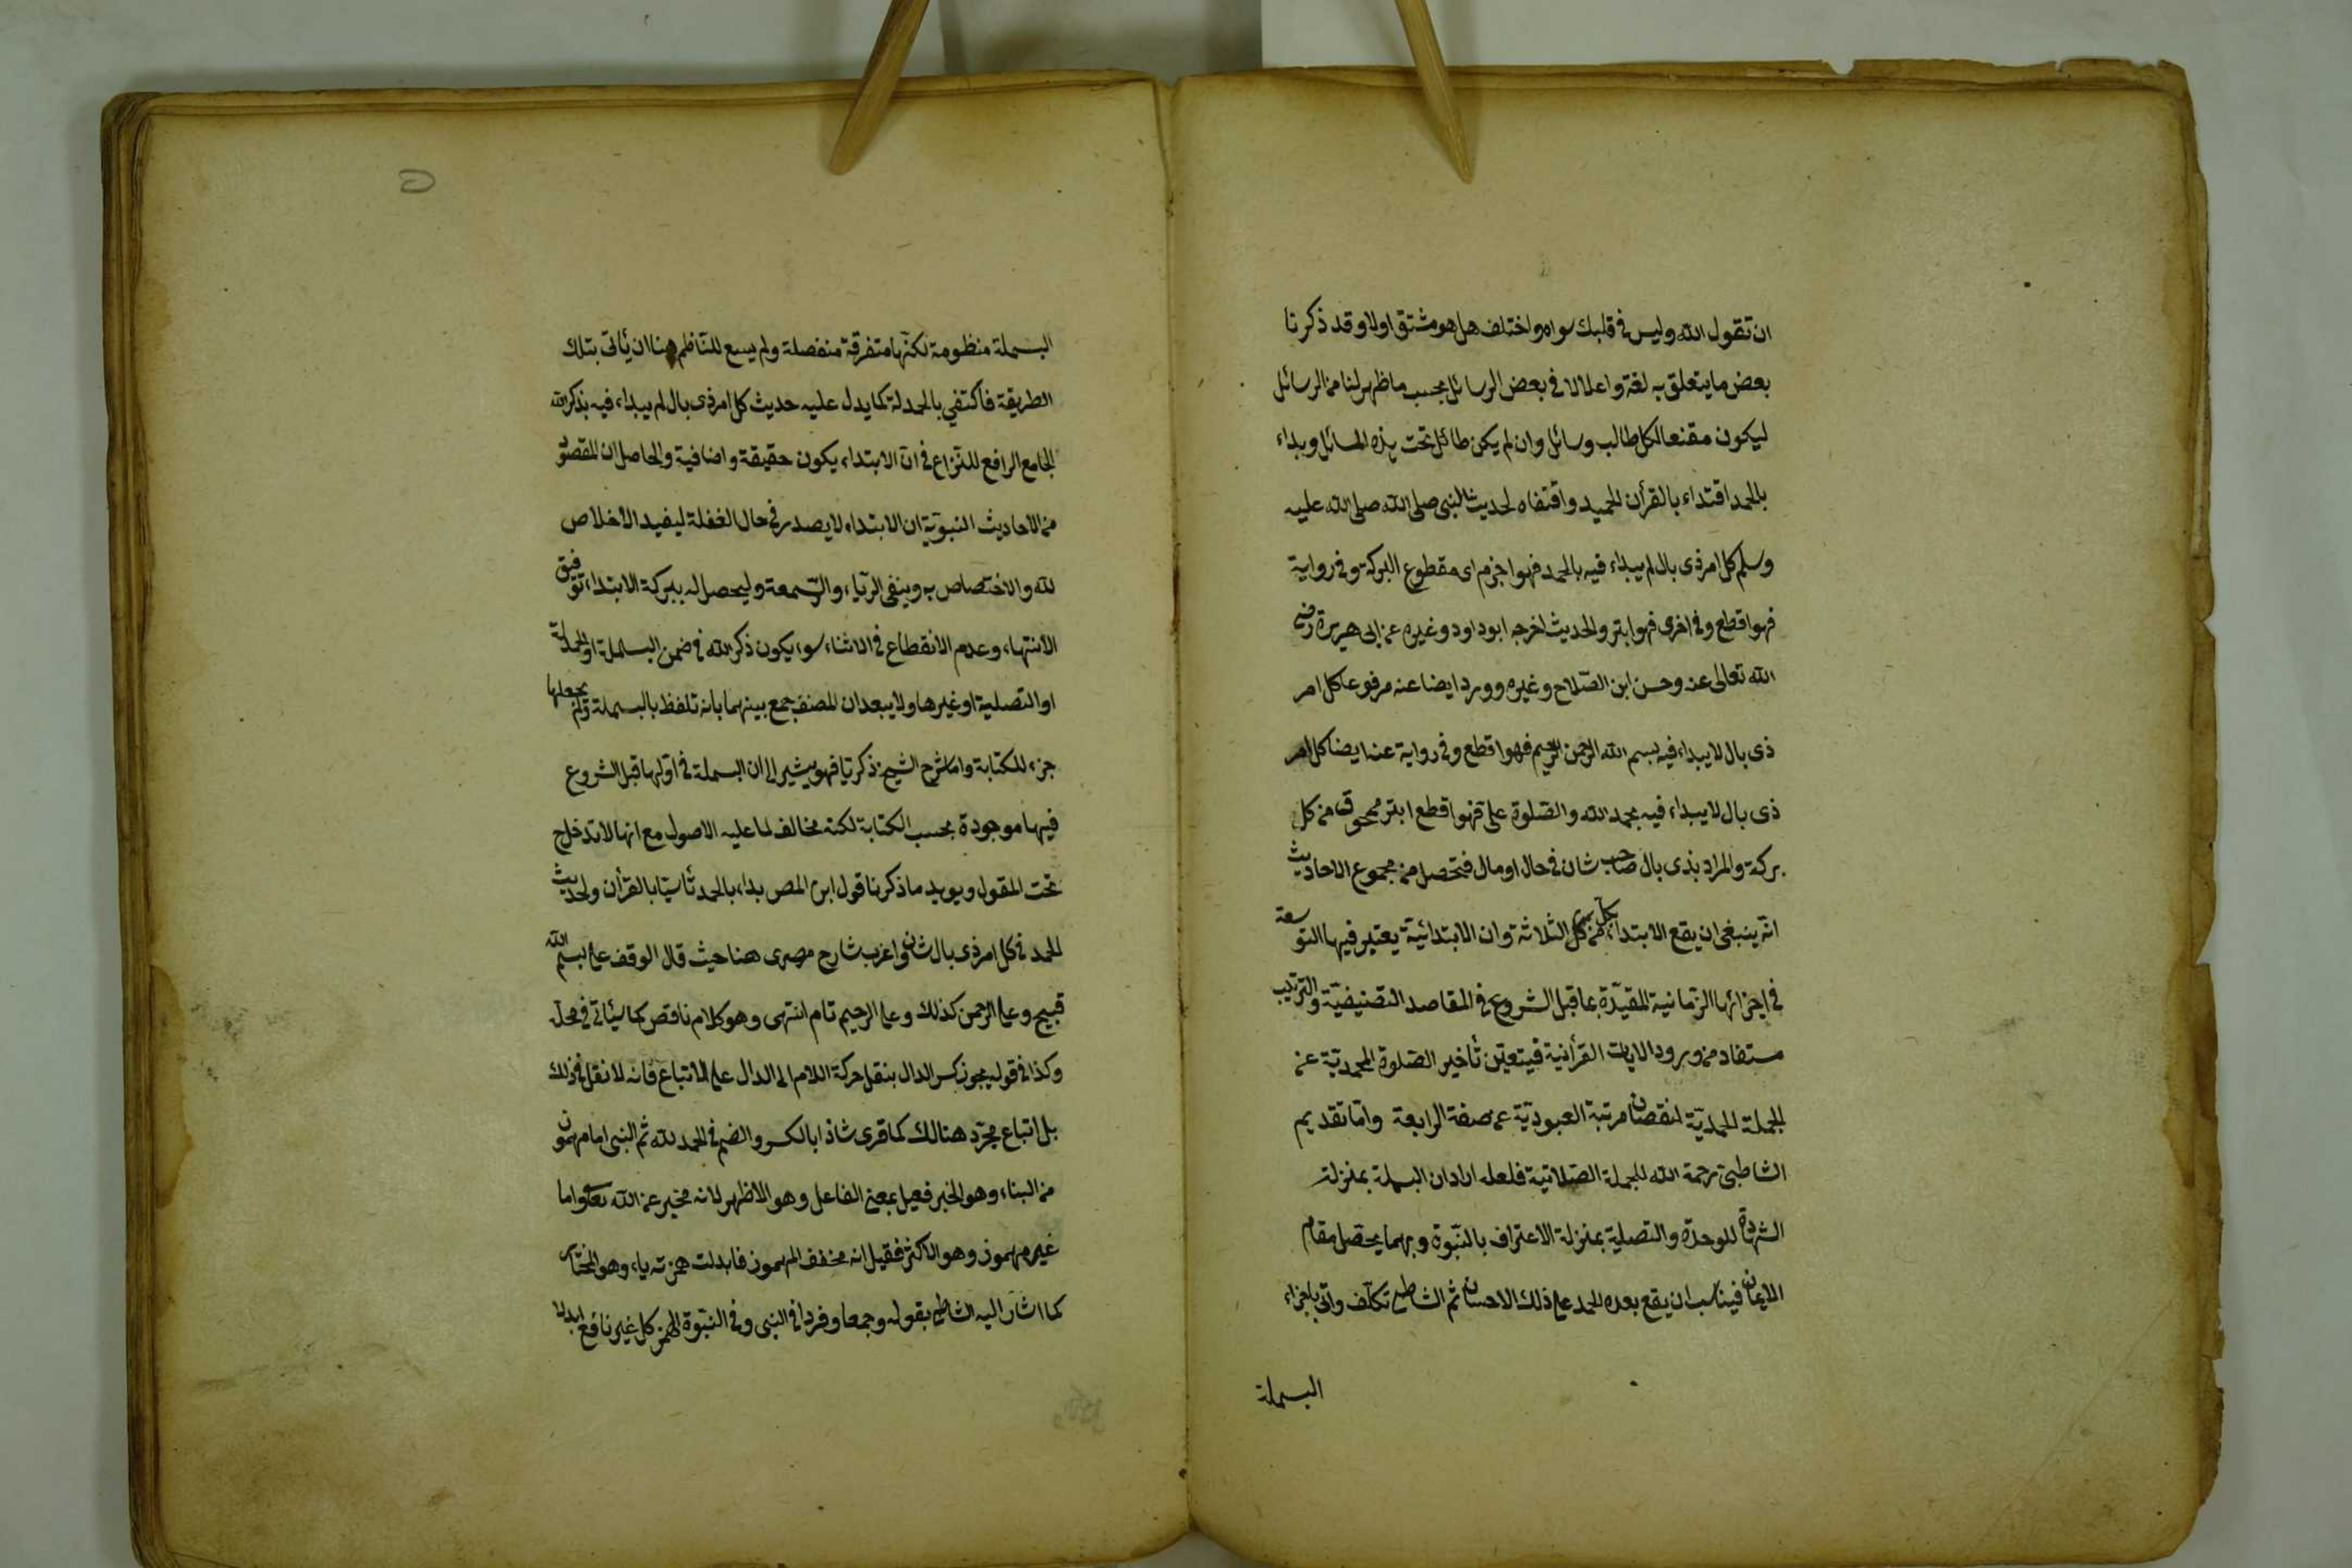 ان تقول الله وليس في قلبك سواه واختلف هل هو مشتق اولا وقد ذكرنا
بعض ما يتعلق به لغة واعلالا في بعض الرسائل بحسب ما ظهر لنا من الرسائل
ليكون مقنعا لكل طالب وسائل وان لم يكن طائل تحت هذه المسائل وبداء
بالحمد اقتداء بالقرأن الحميد واقتفاه لحديث النبي صلى الله صلى الله عليه
وسلم كل امر ذى بال لم يبداء فيه بالحمد فهو اجزم اى مقطوع البركة وفي رواية
فهو اقطع وفي اخرى فهو ابتر والحديث اخرجه ابو داود وغيره عن ابى هريرة رضى
الله تعالى عنه وحسن ابن الصلاح وغيره وورد ايضا عنه مرفوعا كل امر
ذى بال لا يبداء فيه بسم الله الرحمن الرحيم فهو اقطع وفي رواية عنه ايضا كل امر
ذى بال لا يبداء فيه بحمد الله والصلوة على فهو اقطع ابتر ممحوق من كل
بركة والمراد بذى بال صاحب شان في حال او مال فتحصل من مجموع الاحاديث
انه ينبغى ان يقع الابتداء بكل من كل الثلاثة وان الابتدائية يعتبر فيها التوسعة
في اجزائها الزمانية المقيدة بما قبل الشروع في المقاصد التصنيفية والترتيب
مستفاد من ورود الايات القرأنية فيتعين تأخير الصلوة المحمدية عن
الجملة الحمدية لنقصان مرتبة العبودية عن صفة الرابعة واما تقديم
الشاطبى رحمة الله للجملة الصلاتية فلعله اراد ان البسملة بمنزلة
الشهادة للوحدة والتصلية بمنزلة الاعتراف بالنبوة وبهما يحصل مقام
الايمان فيناسب ان يقع بعده الحمد على ذلك الاحسان ثم الشاطبى تكلف واتى باجزاء
البسملة
البسملة منظومة لكنها متفرقة منفصلة ولم يسع للناظم هنا ان يأتى بتلك
الطريقة فاكتفي بالحمدلة كما يدل عليه حديث كل امر ذى بال لم يبداء فيه بذكر الله
الجامع الرافع للنزاع في ان الابتداء يكون حقيقة واضافية والحاصل ان المقصود
من الاحاديث النبوية ان الابتداء لا يصدر في حال الغفلة ليفيد الاخلاص
لله والاختصاص به وينفى الرياء والسمعة وليحصل له ببركة الابتداء توفيق
الانتهاء وعدم الانقطاع في الاثناء سواء يكون ذكر الله في ضمن البسملة او الحمدلة
او التصلية او غيرها ولا يبعد ان المصنف جمع بينهما بانه تلفظ بالبسملة ولم يجعلها
جزء للكتابة واما شرح الشيخ زكريا فهو يشير الى ان البسملة في اولها قبل الشروع
فيها موجودة بحسب الكتابة لكنه مخالف لما عليه الاصول مع انها لا تدخل ح
تحت المقول ويويد ما ذكرنا قول ابن المص بداء بالحمد تأسيا بالقرأن ولحديث
الحمد في كل امر ذى بال شان واغرب شارح مصرى هنا حيث قال الوقف على بسم الله
قبيح وعلى الرحمن كذلك وعلى الرحيم تام انتهى وهو كلام ناقص كما سيأتى في محله
وكذا في قوله يجوز كسر الدال بنقل حركة اللام الى الدال على الاتباع فانه لا نقل في ذلك
بل اتباع مجرد هنالك كما قرى شاذا بالكسر والضم في الحمد لله ثم النبى اما مهموز
من النباء وهو الخبر فعيل بمعنى الفاعل وهو الاظهر لانه مخبر عن الله تعالى واما
غير مهموز وهو الاكثر فقيل انه مخفف المهموز فابدلت همزته ياء وهو المختار
كما اشار اليه الشاطبى بقوله وجمعا وفردا في النبى وفي النبوة الهمز كل غير نافع ابدلا